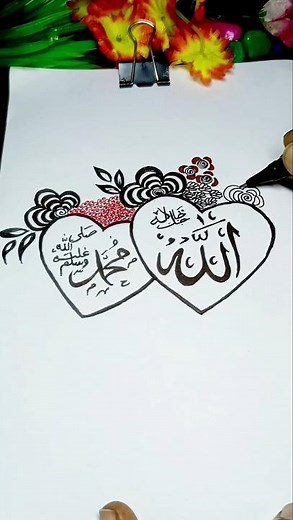 الله
جل جلاله
محمد
صلى
الله
عليه
وسلم